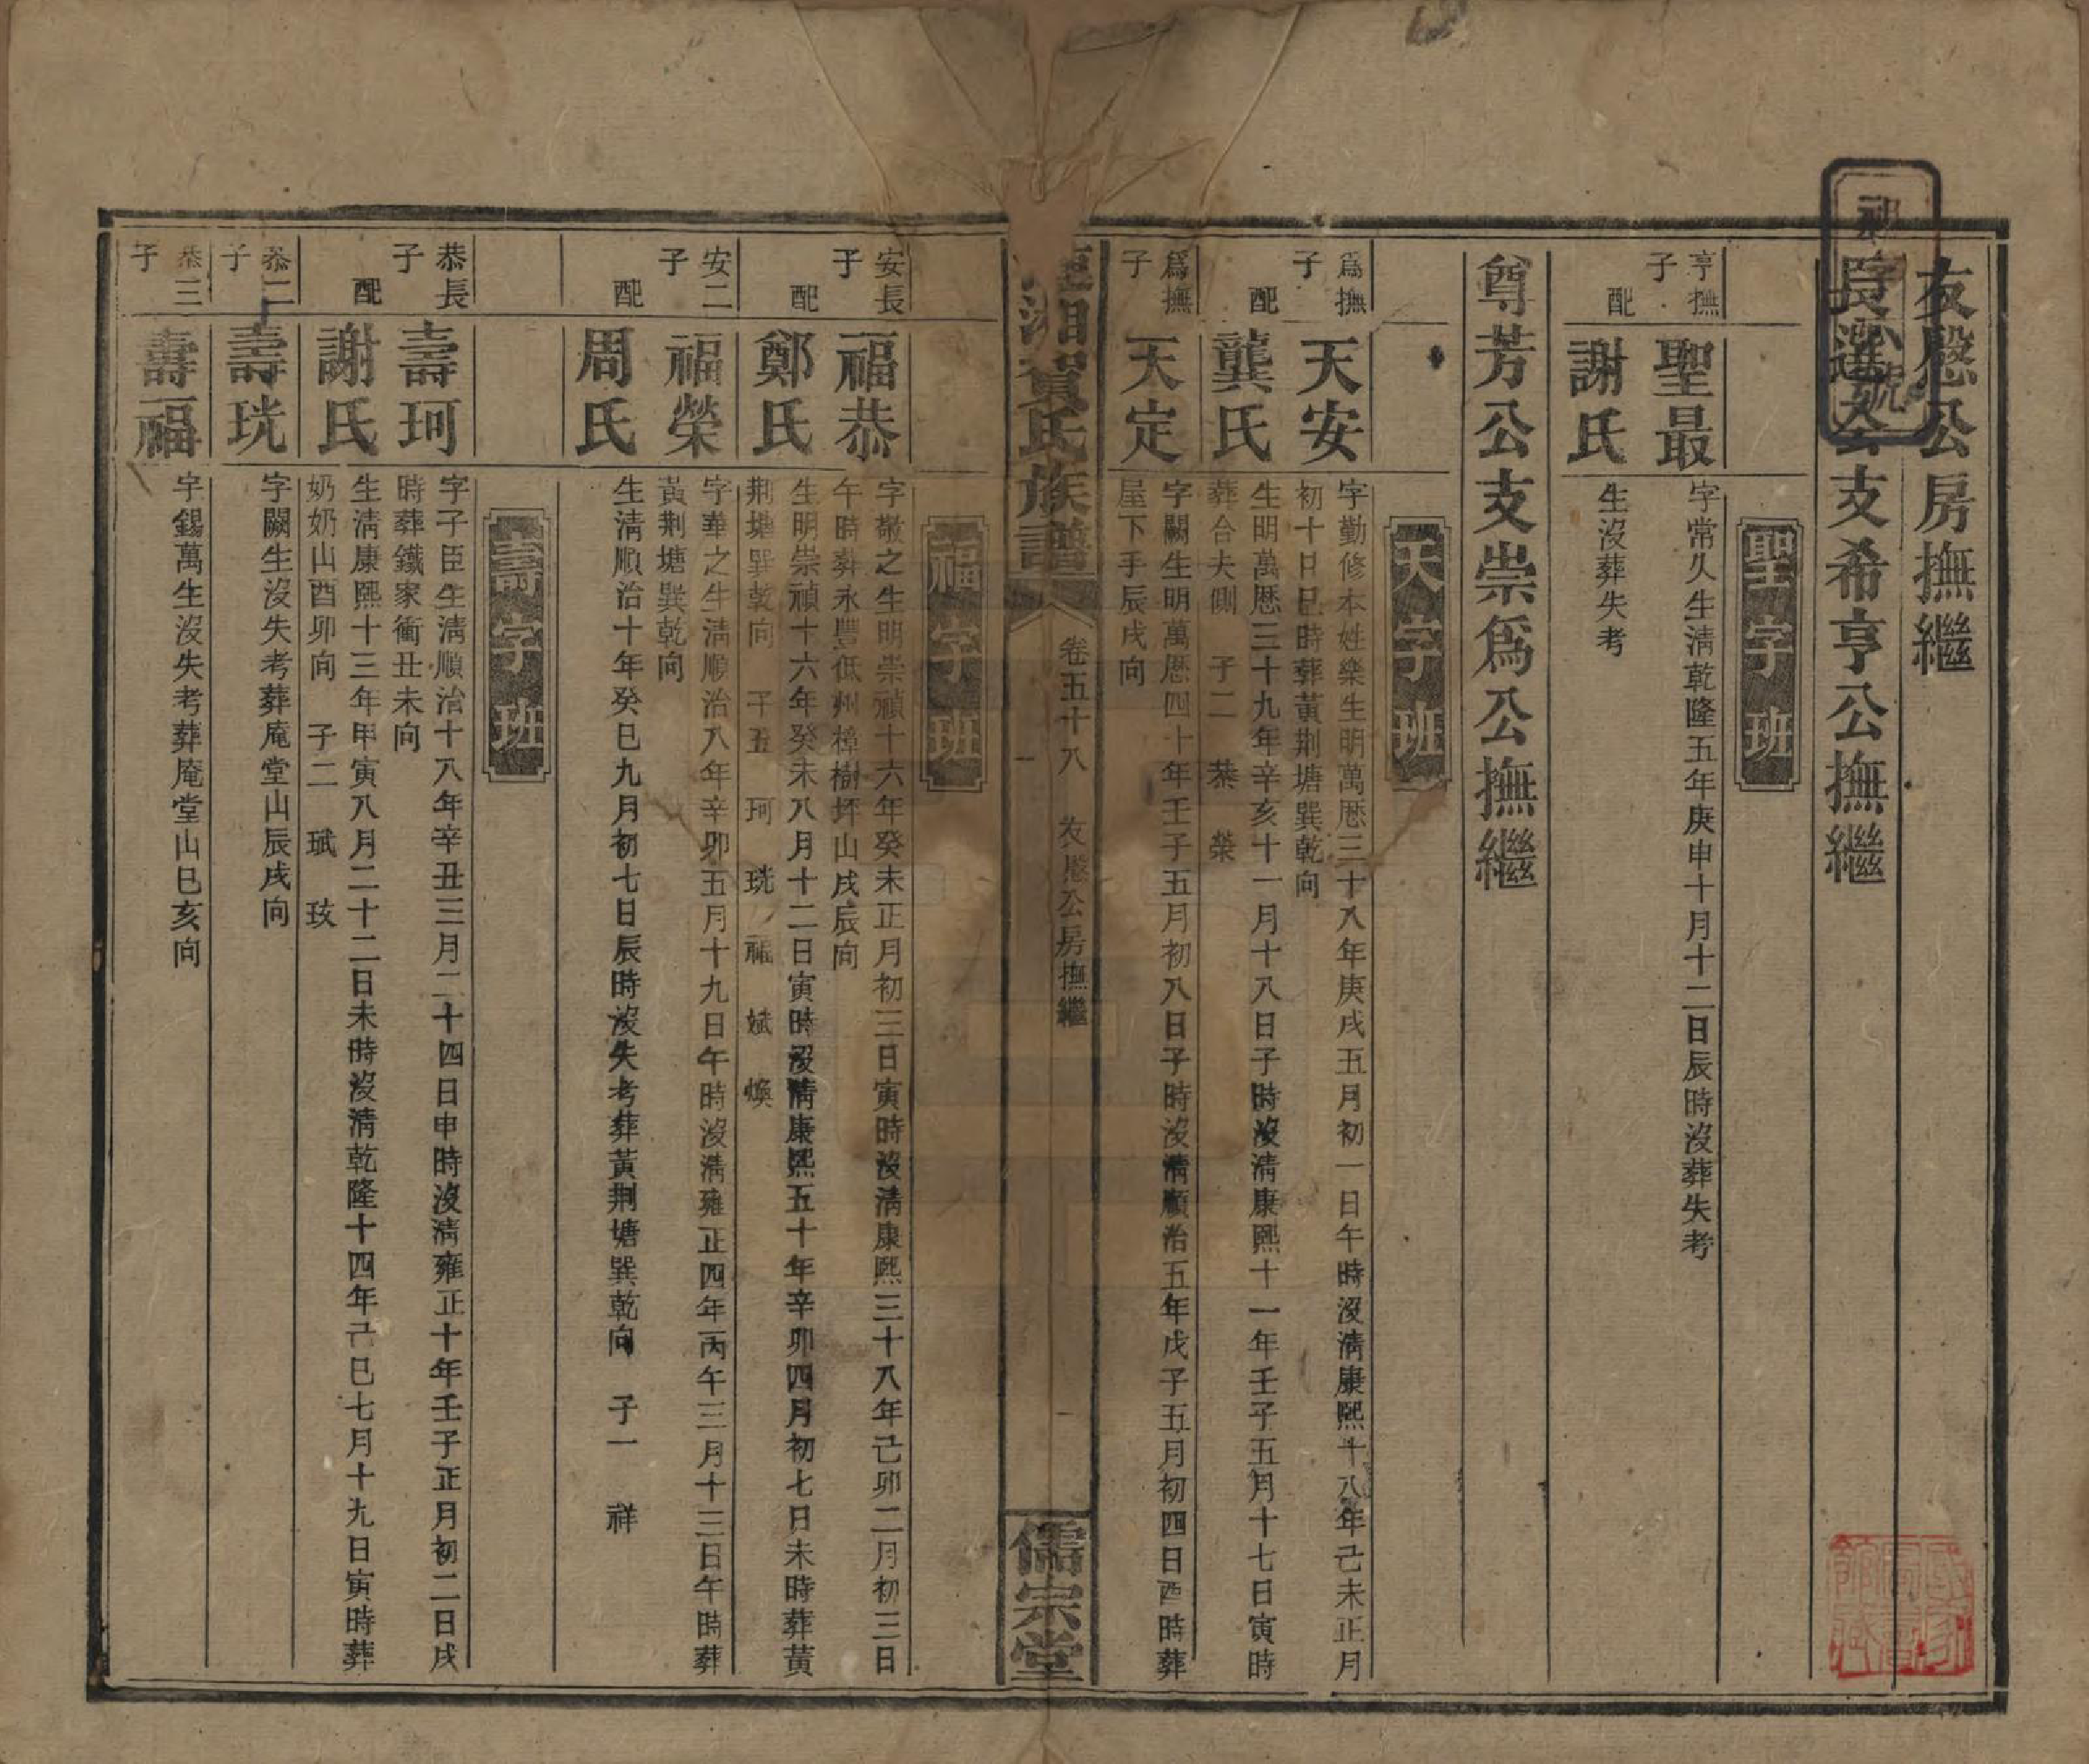 友慇公房撫繼
長選公支希亨公撫繼
聖字班
亨撫子 聖最 字常久生淸乾隆五年庚申十月十二日辰時沒葬失考
配 謝氏 生沒葬失考
尊芳公支崇爲公撫繼
天字班
爲撫子 天安 字勤修本姓樂生明萬厯三十八年庚戌五月初一日午時沒淸康熙十八年己未正月
初十日巳時葬黃荆塘巽乾向
配 龔氏 生明萬厯三十九年辛亥十一月十八日子時沒淸康熙十一年壬子五月十七日寅時
葬合夫側 子二 恭 榮
爲撫子 天定 字闕生明萬厯四十年壬子五月初八日子時沒淸順治五年戊子五月初四日酉時葬
屋下手辰戌向
湘賀氏族譜 卷五十八 友慇公房撫繼 一 儒宗堂
福字班
安長子 福恭 字敬之生明崇禎十六年癸未正月初三日寅時沒淸康熙三十八年己卯二月初三日
午時葬永豐低州樟樹坪山戌辰向
配 鄭氏 生明崇禎十六年癸未八月十二日寅時沒淸康熙五十年辛卯四月初七日未時葬黃
荆塘巽乾向 子五 珂 珖 福 斌 煥
安二子 福榮 字華之生淸順治八年辛卯五月十九日午時沒淸雍正四年丙午三月十三日午時葬
黃荆塘巽乾向
配 周氏 生淸順治十年癸巳九月初七日辰時沒失考葬黃荆塘巽乾向 子一 祥
壽字班
恭長子 壽珂 字子臣生淸順治十八年辛丑三月二十四日申時沒淸雍正十年壬子正月初二日戌
時葬鐵家衝丑未向
配 謝氏 生淸康熙十三年甲寅八月二十二日未時沒淸乾隆十四年己巳七月十九日寅時葬
奶奶山酉卯向 子二 珷 玹
恭二子 壽珖 字闕生沒失考葬庵堂山辰戌向
恭三子 壽福 字錫萬生沒失考葬庵堂山巳亥向